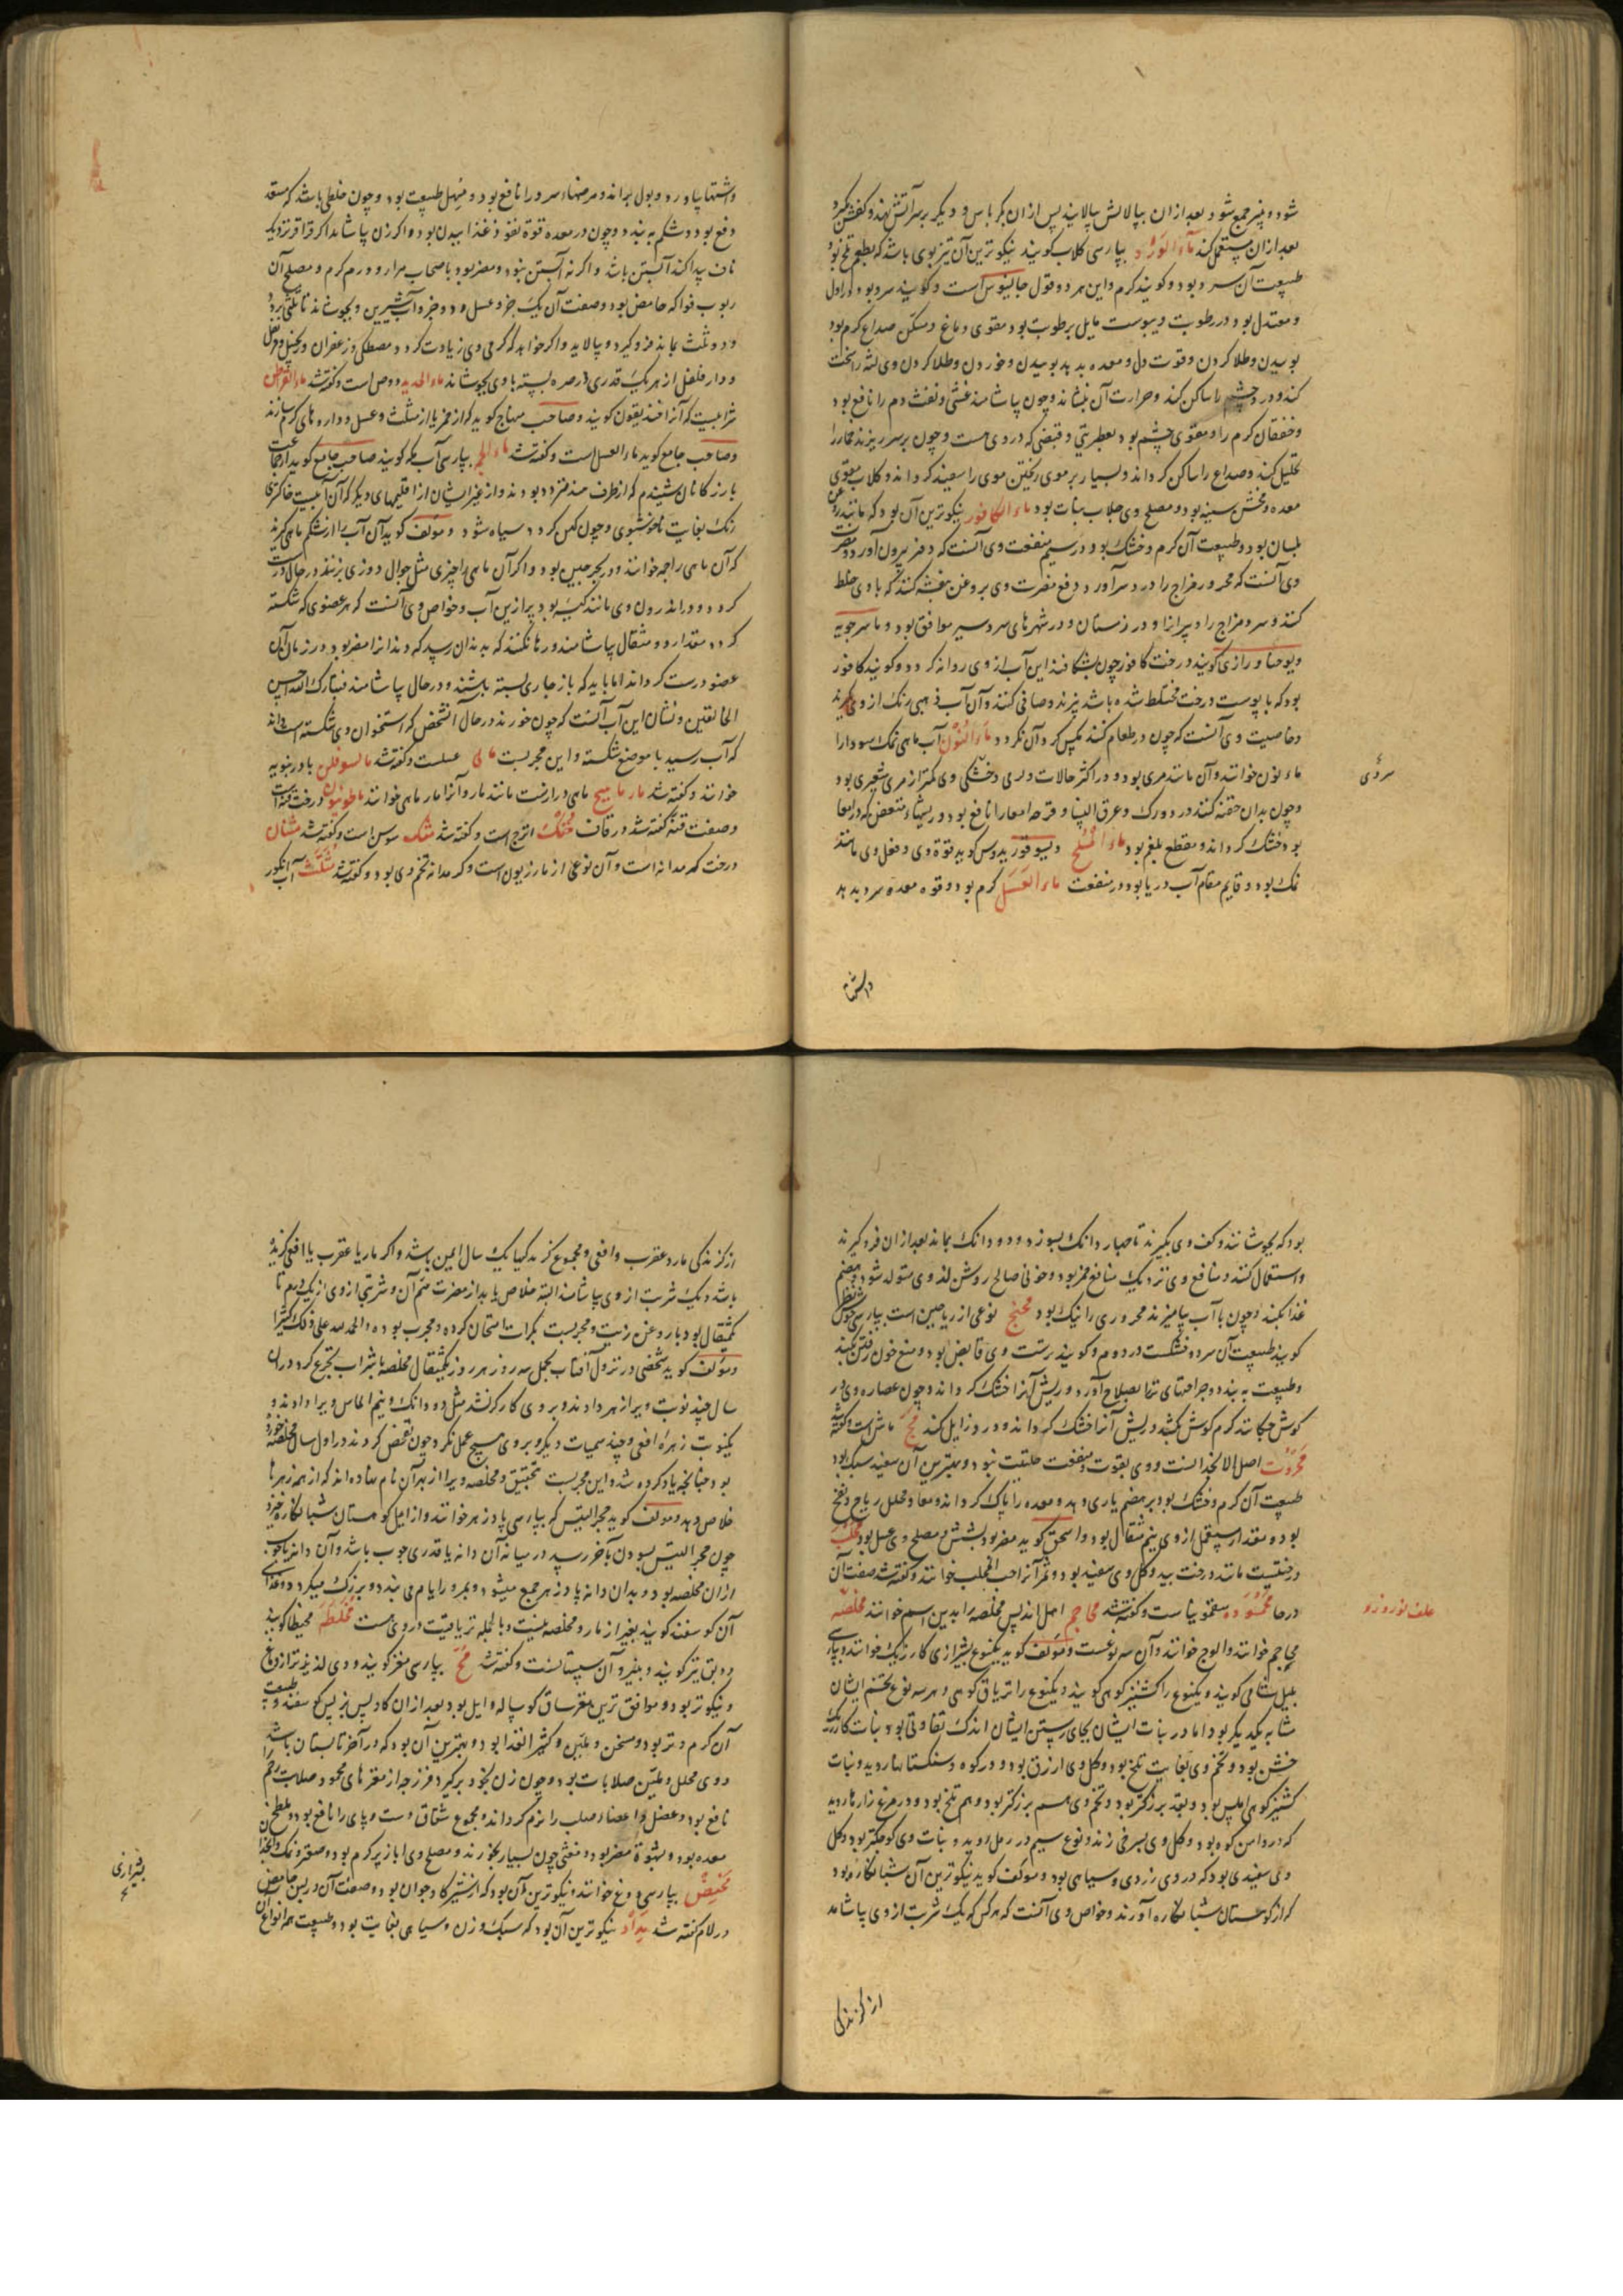 شود و پنیر جمع شود بعد ازان بپالایش بپالایند پس ازان بکرباس و دیگر بر سر آتش نهند و کفش بگیرد
بعد ازان مستعمل کند ماء الورد بپارسی کلاب کویند نیکوترین آن تیزبوی باشد که بطعم تلخ بود
طبیعت آن سرد بود و کویند کرم و این هر دو قول جالینوس است و کویند سرد بود در اول
و معتدل بود در رطوبت و یبوست مایل برطوبت بود مقوی دماغ و مسکن صداع کرم بود
بوییدن و طلا کردن و قوت دل و معده بدهد بوییدن و خوردن و طلا کردن وی لثه را سخت
کند و درد چشم را ساکن کند و حرارت آن بنشاند و چون بیاشامند غشی و نفث دم را نافع بود
و خفقان کرم را و مقوی چشم بود بعطریتی و قبضی که در وی هست و چون بر سر ریزند بخار را
تحلیل کند و صداع را ساکن کرداند و بسیار بر موی ریختن موی را سفید کرداند و کلاب مقوی
معده و مخشن سینه بود و مصلح وی جلاب بنات بود ماء الکافور نیکوترین آن بود که مانند روغن
بلسان بود و طبیعت آن کرم و خشک بود در سیم منفعت وی آنست که دفز بیرون آورد و مضرت
وی آنست که محرور مزاج را درد سر آورد و دفع مضرت وی بروغن بنفشه کنند که با وی خلط
کنند و سرد مزاج را و پیرانرا و در زمستان و در شهرهای سردسیر موافق بود و ماسرجویه
و یوحنا و رازی کویند درخت کافور چون بشکافند این آب از وی روانه کردد و کویند کافور
بود که با پوست درخت مختلط شده باشد بپزند و صافی کنند و آن آب ذهبی رنک از وی کیرند
و خاصیت وی آنست که چون در طعام کنند مکس کرد آن نکردد ماء النون آب ماهی نمک سود را
ماء نون خوانند و آن مانند مری بود و در اکثر حالات و لری و خشکی وی کمتر از مری شعیری بود
و چون بدان حقنه کنند درد ورک و عرق النسا و قرحه امعا را نافع بود و ریشهاء متعفن که در امعا
بود خشک کرداند و مقطع بلغم بود ماء الملح دیسقوریدوس کوید قوة وی و فعل وی مانند
نمک بود و قایم مقام آب دریا بود در منفعت ماء العسل کرم بود و قوه معده سرد بدهد
سردی
واشتها
واشتها بیاورد و بول براند و مرضهاء سرد را نافع بود و مسهل طبیعت بود و چون خلطی باشد که مستعد
دفع بود و شکم ببندد و چون در معده قوة نفوذ غذا بیدن بود و اکر زن بیاشامد اکر قراقر نزدیک
ناف پیدا کند آبستن باشد و اکر نه آبستن نبود و مضر بود باصحاب مرار و ورم کرم و مصلح آن
ربوب فواکه حامض بود و صفت آن یک جزو عسل و دو جزو آب شیرین و بجوشاند تا ثلثی برود
و دو ثلث بماند فرو کیرد و بپالاید و اکر خواهد که کرمی وی زیادت کردد مصطکی و زعفران و زنجبیل و قرنفل
و دار فلفل از هر یک قدری در صره بسته با وی بجوشاند ماء الحدید دوص است و کفته شد ماء القراطن
شرابیست که آنرا افندیقون کویند و صاحب منهاج کوید که از خمر یا از مثلث و عسل و داروهای کرم سازند
و صاحب جامع کوید ماء العسل است و کفته شد ماء الجمه بپارسی آب جمه کویند صاحب جامع کوید از جماعت
بازرکانان شنیدم که از طرف هند متردد بودند و از غیر ایشان از اقلیمهای دیکر که آن آبیست خاکستری
رنک بغایت ناخوشبوی و چون کهن کردد سیاه شود و مؤلف کوید آن آب را از شکم ماهی کیرند
که آن ماهی را جمه خوانند و در بحر چین بود و اکر آن ماهی را چیزی مثل جوال دوزی بزنند در حال درست
کردد و در اندرون وی مانند کیسه بود پر ازین آب و خواص وی آنست که هر عضوی که شکسته
کردد مقدار دو مثقال بیاشامند و رها نکنند که بدندان رسد که دندانرا مضر بود در زمان آن
عضو درست کرداند اما باید که باز جای بسته باشند و در حال بیاشامند فتبارک الله احسن
الخالقین و نشان این آب آنست که چون خورند در حال آن شخص که استخوان وی شکسته است داند
که آب رسید با موضع شکسته و این مجربست ماذی عسلست و کفته شد مالسوفلن بادرنبویه
خوانند و کفته شد مارماهیج ماهی درازست مانند مار و آنرا مار ماهی خوانند ماطونیون درخت قنه است
و صفت قنه کفته شد در قاف متک اترج است و کفته شد متک سوسن است و کفته شد مثنان
درخت کمدانه است و آن نوعی از مازریون است و کرمدانه تخم وی بود و کفته شد مثلث آب انکور
بود که بجوشانند و کف وی بکیرند تا چهار دانک بسوزد و دو دانک بماند بعد ازان فرو کیرند
و استعمال کنند و منافع وی نزدیک منافع خمر بود و خونی صالح روشن از وی متولد شود و هضم
غذا بکند و چون با آب بیامیزند محروری را نیک بود مجنج نوعی از ریاحین است بپارسی خوش نظر
کویند طبیعت آن سرد و خشکست در دوم و کویند ترست وی قابض بود و منع خون رفتن بکند
و طبیعت ببندد و جراحتهای تر را بصلاح آورد و ریش آنرا خشک کرداند و چون عصاره وی در
کوش چکانند کرم کوش بکشد و ریش آنرا خشک کرداند و درد زایل کند مج ماش است و کفته شد
محروت اصل الانجدانست و وی بقوت و منفعت حلتیت نبود و بهترین آن سفید سبک بود
طبیعت آن کرم و خشک بود بر هضم یاری دهد و معده را پاک کرداند و معا و محلل ریاح و نفخ
بود و مقدار مستعمل از وی نیم مثقال بود و اسحق کوید مضر بود بشش و مصلح وی عسل بود محلب
درختیست مانند درخت بید و کل وی سفید بود و ثمر آنرا حب المحلب خوانند و کفته شد صفت آن
در حا محموده سقمونیاست و کفته شد محاجم اصل اندلس مخلصه را بدین اسم خوانند مخلصه
محاجم خوانند و الوج خوانند و آن سه نوعست و مؤلف کوید یکنوع بشیرازی کارزنک خوانند و بپارسی
بیل شامی کویند و یکنوع را کشنیز کوهی کویند و یکنوع را تریاق کوهی و هر سه نوع تخم ایشان
مشابه یکدیکر بود اما در نبات ایشان بجای رستن ایشان اندک تفاوتی بود نبات کارزنک
خشن بود و تخم وی بغایت تلخ بود و کل وی ازرق بود و در کوه و سنکستانها روید و نبات
کشنیز کوهی املس بود و بقد بزرکتر بود و تخم وی هم بزرکتر بود و هم تلخ بود و در مرغزارها روید
که در دامن کوه بود و کل وی بسرخی زند و نوع سیم در رمل روید و نبات وی کوچکتر بود و کل
وی سفیدی بود که در وی زردی و سیاهی بود و مؤلف کوید نیکوترین آن شبانکاره بود
که از کوهستان شبانکاره آورند و خواص وی آنست که هر کس که یک شربت از وی بیاشامد
علف نوروزو
از کزندکی
از کزندکی مار و عقرب و افعی و مجموع کزندکیها یک سال ایمن باشد و اکر مار یا عقرب یا افعی کزیده
باشد و یک شربت از وی بیاشامند البته خلاص یابد از مضرت سم آن و شربتی از وی از یک درم تا
یکمثقال بود با روغن زیت و مجربست بکرات امتحان کرده و مجرب بوده والحمد لله علی ذلک کثیرا
و مؤلف کوید شخصی در نزول آفتاب بحمل سه روز هر روز یکمثقال مخلصه با شراب تجرع کرد در ان
سال چند نوبت ویرا زهر دادند و بر وی کارکر نشد مثل دو دانک و نیم الماس ویرا دادند و
یکنوبت زهره افعی و چند سمیات دیکر و بر وی هیچ عمل نکرد چون تفحص کردند در اول سال مخلصه خورده
بود چنانچه یاد کرده شد و این مجربست بتحقیق و مخلصه ویرا از بهر آن نام نهاده اند که از همه زهرها
خلاص دهد و مؤلف کوید حجر التیس که بپارسی پادزهر خوانند و از ایل کوهستان شبانکاره خیزد
چون حجر التیس بسودن بآخر رسد در میانه آن دانه یا قدری چوب باشد و آن دانه یا چوب
ازان مخلصه بود و بدان دانه پادزهر جمع میشود و بمرور ایام می بندد و بزرک میکردد و غذای
آن کوسفند کویند بغیر از مار و مخلصه نیست و بالجمله تریاقیت در وی هست مخلطه مخیطا کویند
و دبق نیز کویند و بغیر آن سپستانست و کفته شد مخ بپارسی مغز کویند و وی لذیذتر از دماغ
و نیکوتر بود و موافق ترین مغز ساق کوساله و ایل بود بعد ازان کاو پس بز پس کوسفند و طبیعت
آن کرم و تر بود و مسخن و ملین و کثیر الغذا بود و بهترین آن بود که در آخر تابستان باشد
و وی محلل و ملین صلابات بود و چون زن بخود برکیرد فرزجه از مغزهای محمود صلابت رحم را
نافع بود و عضل و اعضاء صلب را نرم کرداند و مجموع شقاق دست و پای را نافع بود و ملطخ
معده بود و بشهوة مضر بود و مغثی چون بسیار بخورند و مصلح وی ابازیر کرم بود و صعتر و نمک و انجدان
مخیض بپارسی دوغ خوانند و نیکوترین آن بود که از شیر کاو جوان بود و صفت آن در لبن حامض
در لام کفته شد مداد نیکوترین آن بود که سبک وزن و سیاهی بغایت بود و طبیعت همه انواع آن
بشیرازی